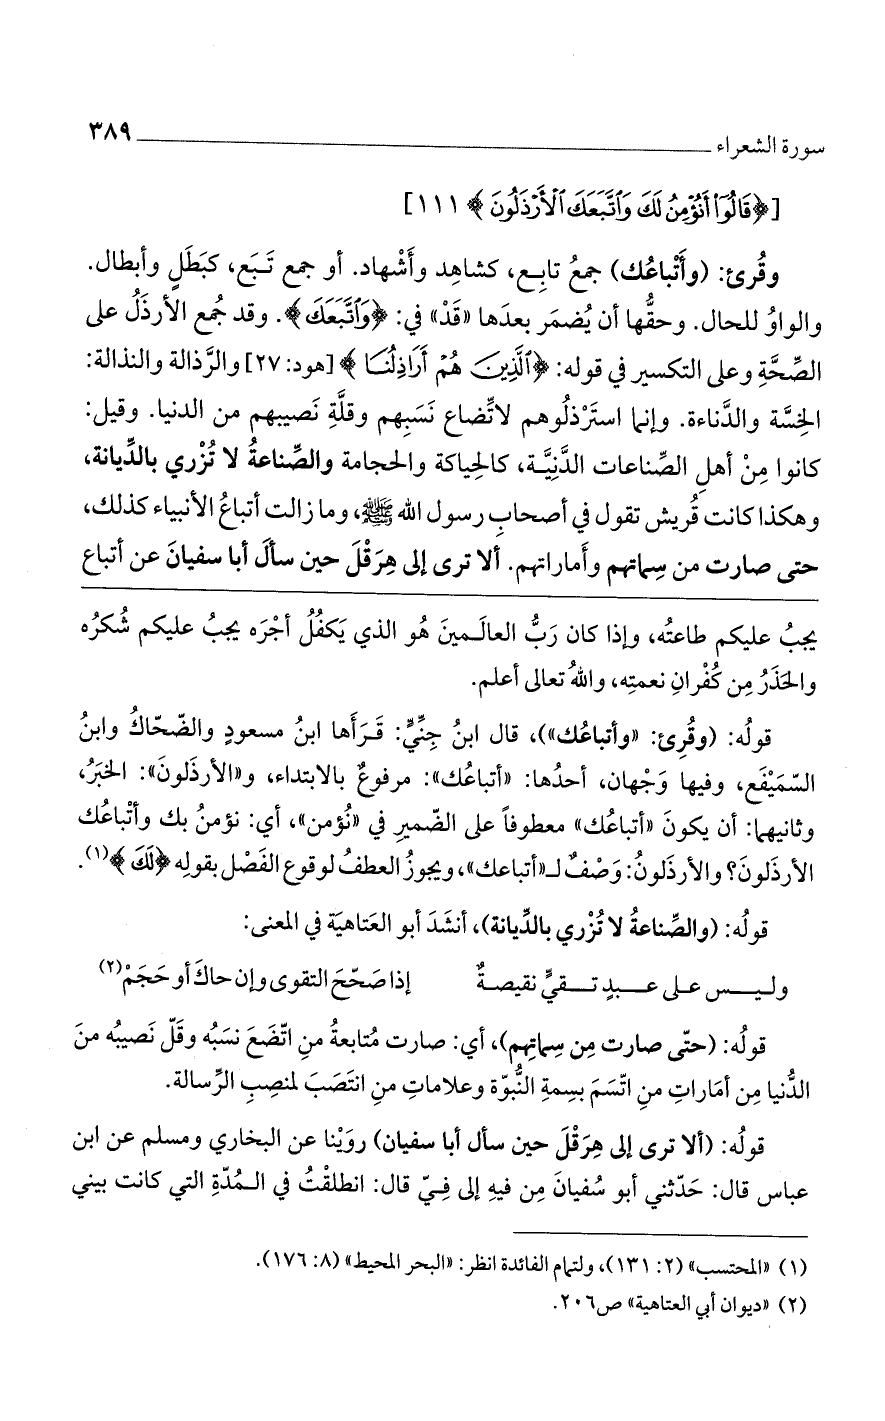 سورة الشعراء ٣٨٩
[﴿قَالُوٓا۟ أَنُؤْمِنُ لَكَ وَٱتَّبَعَكَ ٱلْأَرْذَلُونَ﴾ ١١١]
وقُرئ: (وأَتْباعُك) جمعُ تابِع، كشاهِد وأَشْهاد. أو جمع تَبَع، كبَطَلٍ وأبطال.
والواوُ للحال. وحقُّها أن يُضمَر بعدَها «قَدْ» في: ﴿وَٱتَّبَعَكَ﴾. وقد جُمع الأرذَلُ على
الصِّحَّةِ وعلى التكسير في قوله: ﴿ٱلَّذِينَ هُمْ أَرَاذِلُنَا﴾ [هود: ٢٧] والرَّذالة والنذالة:
الخِسَّة والدَّناءة. وإنما استَرْذلُوهم لاتِّضاع نَسَبِهم وقلَّةِ نَصيبِهم من الدنيا. وقيل:
كانوا مِنْ أهلِ الصِّناعات الدَّنِيَّة، كالحِياكة والحجامة والصِّناعةُ لا تُزْري بالدِّيانة،
وهكذا كانت قُريش تقول في أصحابِ رسول الله ﷺ، وما زالت أتباعُ الأنبياء كذلك،
حتى صارت من سِماتِهم وأَماراتهم. ألا ترى إلى هِرَقْلَ حين سألَ أبا سفيانَ عن أتباع
يجبُ عليكم طاعتُه، وإذا كان رَبُّ العالَمينَ هُو الذي يَكفُلُ أجْرَه يجبُ عليكم شُكرُه
والحَذَرُ مِن كُفْرانِ نعمتِه، واللهُ تعالى أعلم.
قولُه: (وقُرِئ: «وأتباعُك»)، قال ابنُ جِنِّيٍّ: قَرَأها ابنُ مسعودٍ والضّحّاكُ وابنُ
السَّمَيْفَعِ، وفيها وَجْهان، أحدُها: «أتباعُك»: مرفوعٌ بالابتداء، و«الأرذَلونَ»: الخبَرُ،
وثانيهما: أن يكونَ «أتباعُك» معطوفاً على الضّميرِ في «نُؤمن»، أي: نؤمنُ بك وأتْباعُك
الأرذَلونَ؟ والأرذَلونُ: وَصْفٌ لـ«أتباعك»، ويجوزُ العطفُ لوقوع الفَصْل بقولِه ﴿لَكَ﴾(١).
قولُه: (والصِّناعةُ لا تُزْري بالدِّيانة)، أنشَدَ أبو العَتاهيَة في المعنى:
وليس على عبدٍ تقيٍّ نقيصةٌ إذا صَحّحَ التقوى وإن حاكَ أو حَجَمْ(٢)
قولُه: (حتّى صارت مِن سِماتِهم)، أي: صارت مُتابعةُ منِ اتَّضَعَ نسَبُه وقَلّ نَصيبُه منَ
الدُّنيا مِن أمَاراتِ منِ اتّسَمَ بسِمةِ النُّبوّة وعلاماتِ منِ انتَصَبَ لمنصِبِ الرِّسالة.
قولُه: (ألا ترى إلى هِرَقْلَ حين سأل أبا سفيان) روَيْنا عن البخاري ومسلم عن ابن
عباس قال: حَدّثني أبو سُفيانَ مِن فيهِ إلى فِيّ قال: انطلقْتُ في المُدّةِ التي كانت بيني
(١) «المحتسب» (٢: ١٣١)، ولتمام الفائدة انظر: «البحر المحيط» (٨: ١٧٦).
(٢) «ديوان أبي العتاهية» ص٢٠٦.